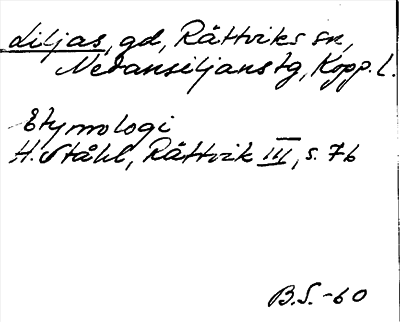 Liljas, gd, Rättviks sn,
Nedansiljans tg, Kopp. l.
Etymologi
H. Ståhl, Rättvik III, s. 76
B.S. -60